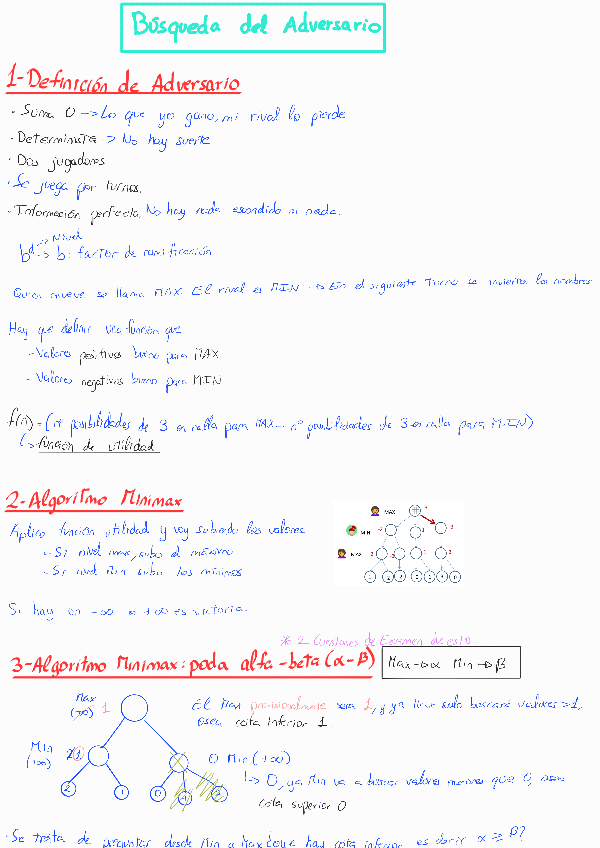 Búsqueda del Adversario
1-Definición de Adversario
· Suma 0 -> Lo que yo gano, mi rival lo pierde
· Determinista -> No hay suerte
· Dos jugadores
· Se juega por turnos.
· Información perfecta. No hay nada escondido ni nada.
-> Nivel
b^d -> b: factor de ramificación
Quien mueve se llama MAX. El rival es MIN -> En el siguiente turno se invierten los nombres
Hay que definir una función que
- Valores positivos bueno para MAX
- Valores negativos bueno para MIN
f(n) = (nº posibilidades de 3 en ralla para MAX - nº posibilidades de 3 en ralla para MIN)
función de utilidad
2-Algoritmo Minimax
Aplico función utilidad y voy subiendo los valores
- Si nivel max, subo el máximo
- Si nivel Min subo los mínimos
MAX
MIN
MAX
Si hay un -∞ o +∞ es victoria.
* 2 Cuestiones de Examen de esto
3-Algoritmo Minimax: poda alfa-beta (α-β)
Max -> α Min -> β
Max
(-∞) 1
El Max provisionalmente sera 1, y ya tiene solo buscará valores >1,
osea cota inferior 1
Min
(+∞)
2 1
0 Min (+∞)
-> 0, ya Min va a buscar valores menores que 0, osea
cota superior 0
2 1 0
· Se trata de preguntar desde Min a Max que hay cota inferior, es decir α ≥ β?